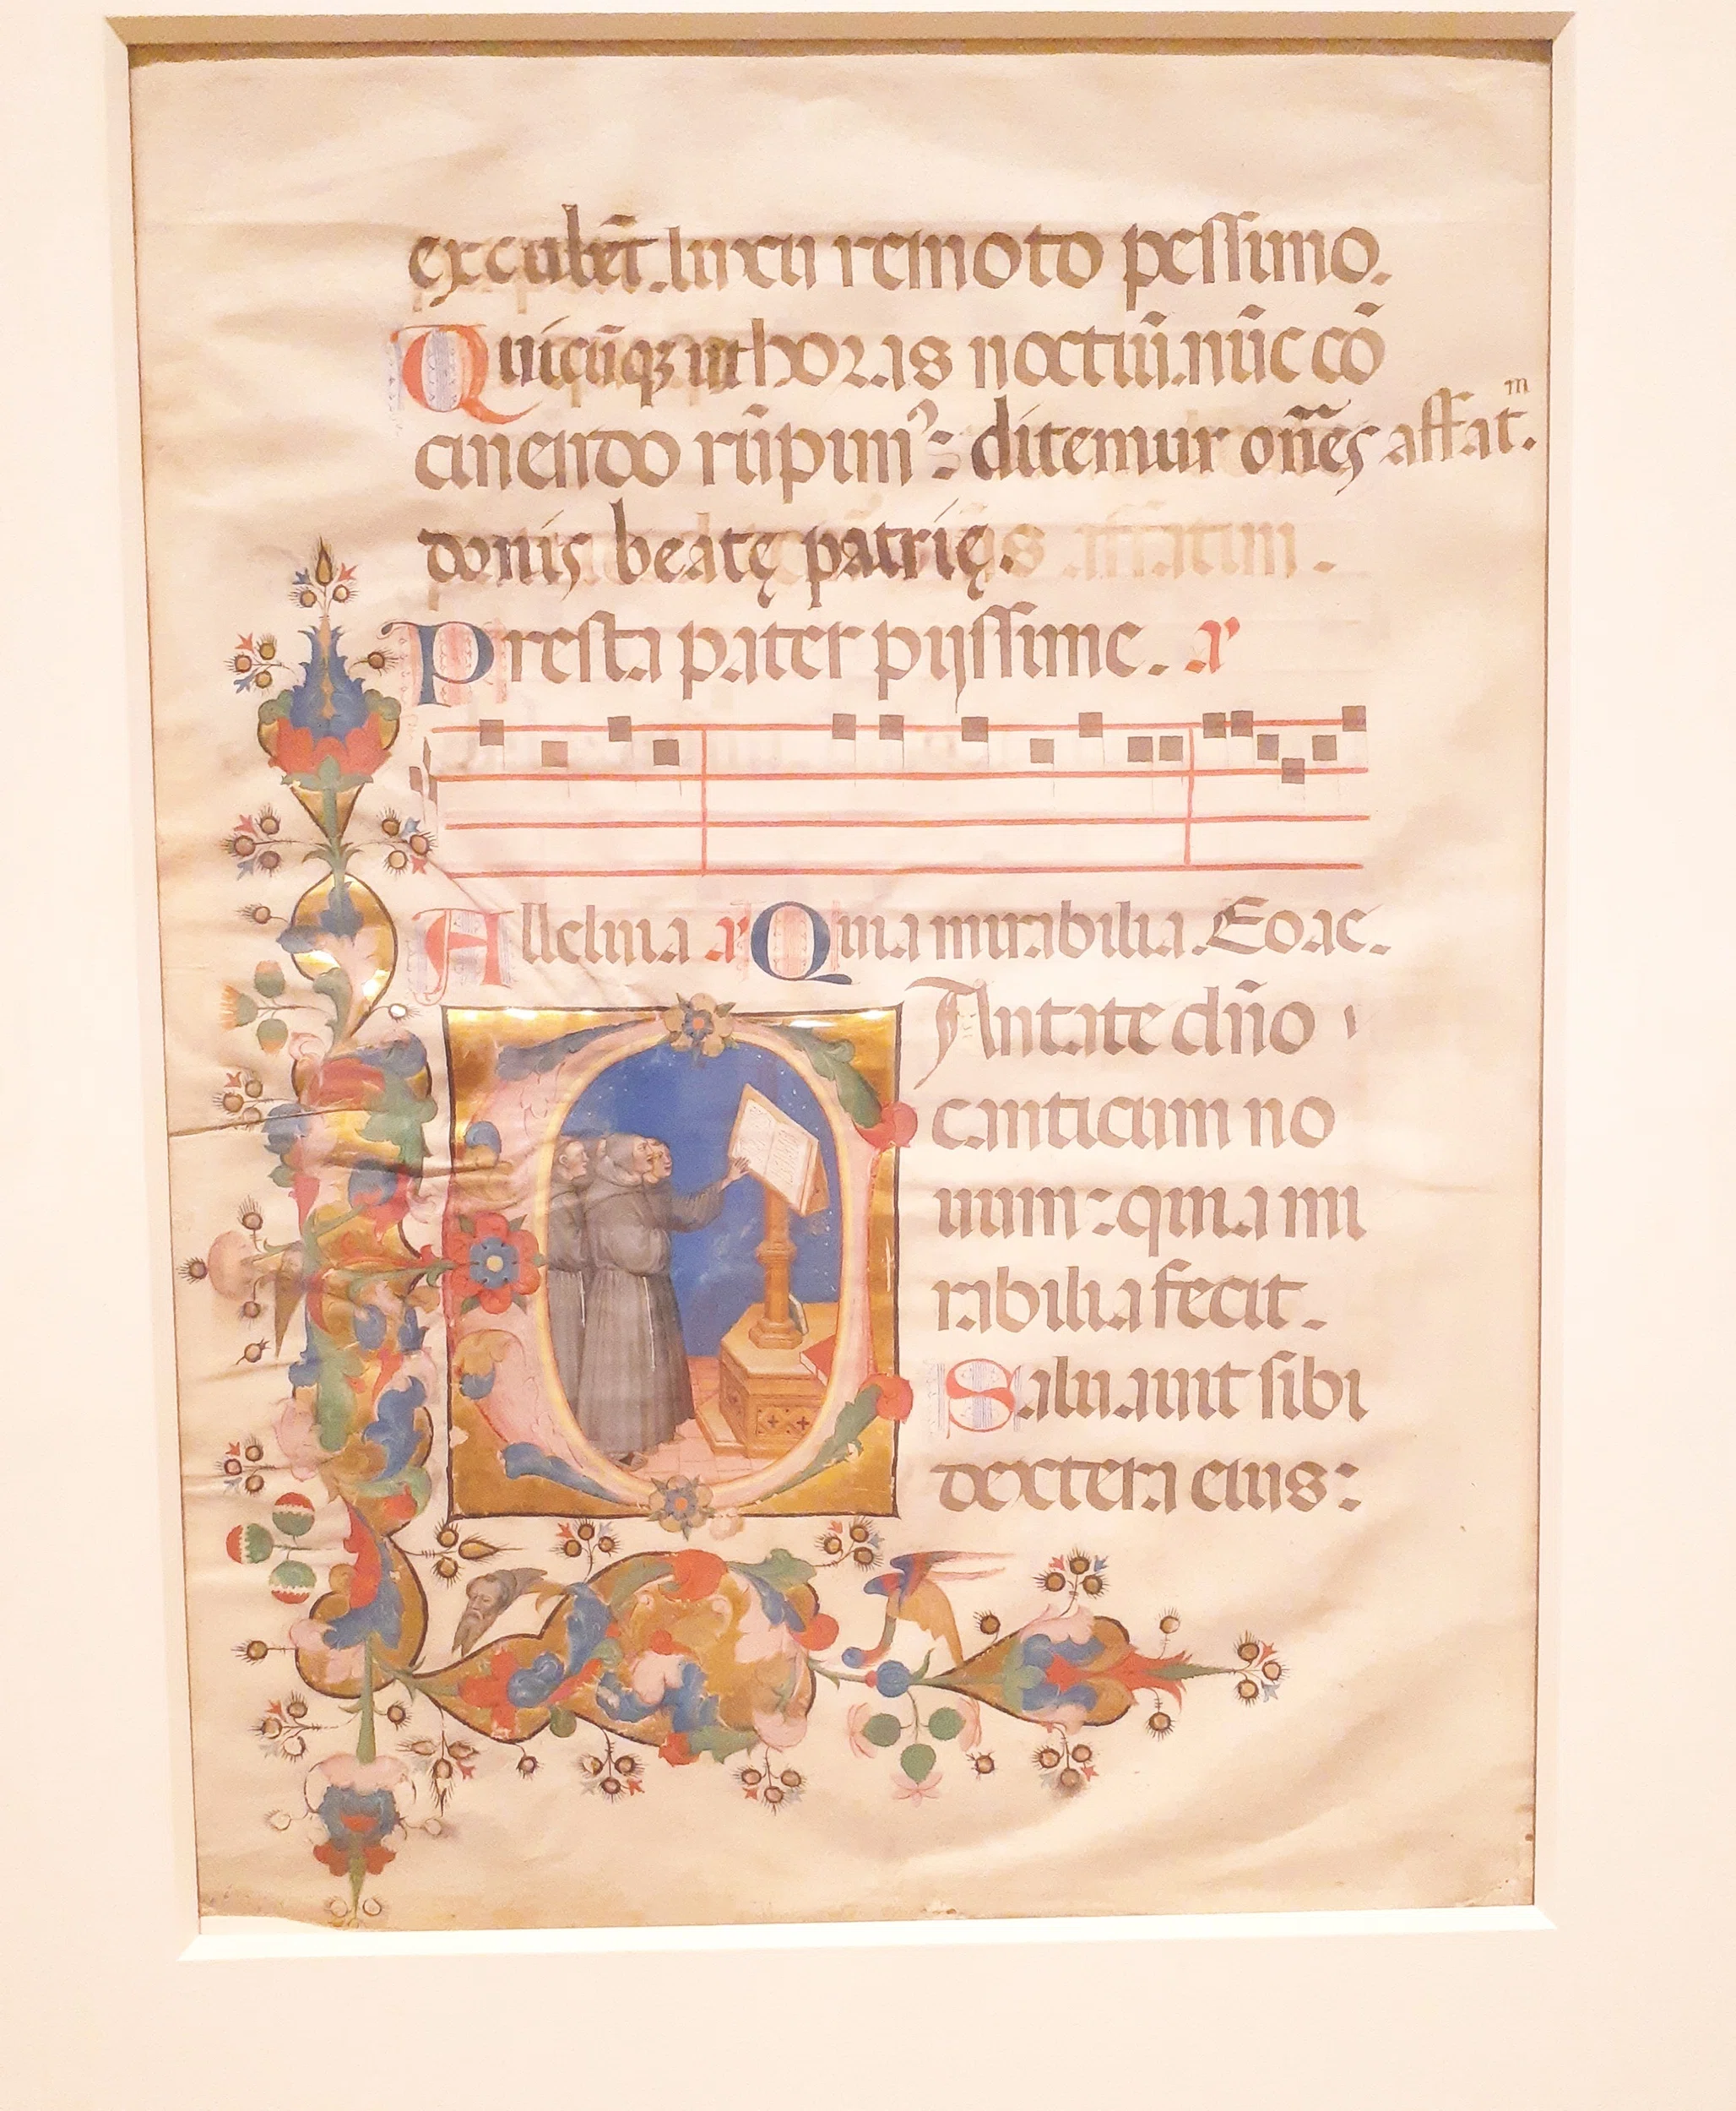 excubēt. luxu remoto pessimo.
Quicūqꝫ ut horas noctiū. nūc cō
cinendo rūpim⁹: ditemur om̄es affat̄ᵐ.
donis beatę patrię.
Presta pater pijssime. a
Alleluia a Quia mirabilia. Eoae.
Cantate dn̄o
canticum no
uum: quia mi
rabilia fecit.
Saluauit sibi
dextera eius: